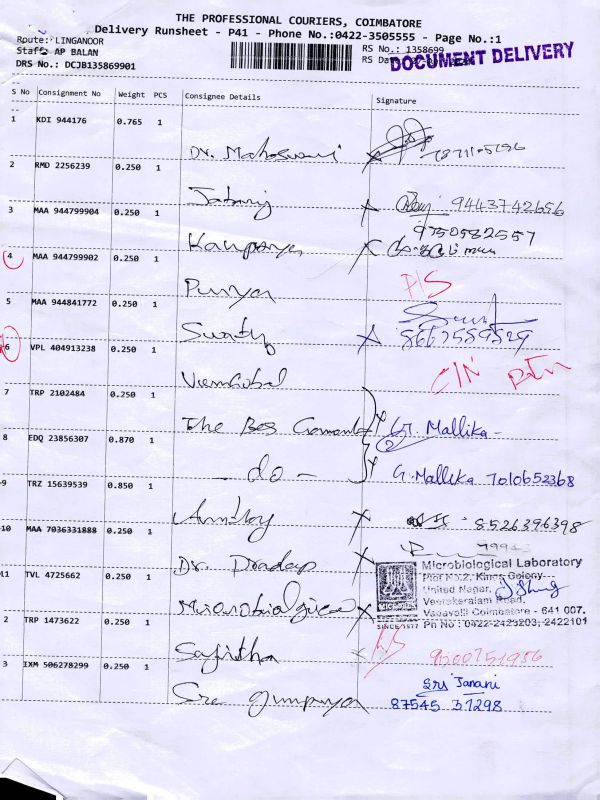 THE PROFESSIONAL COURIERS, COIMBATORE
Delivery Runsheet - P41 - Phone No.:0422-3505555 - Page No.:1
Route: LINGANOOR
RS No.: 1358699
Staff: AP BALAN
RS Da
DOCUMENT DELIVERY
DRS No.: DCJB135869901
S No Consignment No Weight PCS Consignee Details Signature
1 KDI 944176 0.765 1
Dr.
2 RMD 2256239 0.250 1
9443742656
3 MAA 944799904 0.250 1
9750582557
4 MAA 944799902 0.250 1
Punya
D/S
5 MAA 944841772 0.250 1
6 VPL 404913238 0.250 1
C/N
7 TRP 2102484 0.250 1
The Bes
G. Mallika
8 EDQ 23856307 0.870 1
- do -
G. Mallika 7010652368
9 TRZ 15639539 0.850 1
8526396398
10 MAA 7036331888 0.250 1
Dr. Pradeep
Microbiological Laboratory
Plot No.2, Kings Colony
11 TVL 4725662 0.250 1
United Nagar,
Veerakeralam Road,
Vadavalli Coimbatore - 641 007.
SINCE 1977 Ph No : 0422-2423203, 2422101
2 TRP 1473622 0.250 1
Sajitha
9000751956
3 IXM 506278299 0.250 1
Sre
Sri Janani
87545 31298